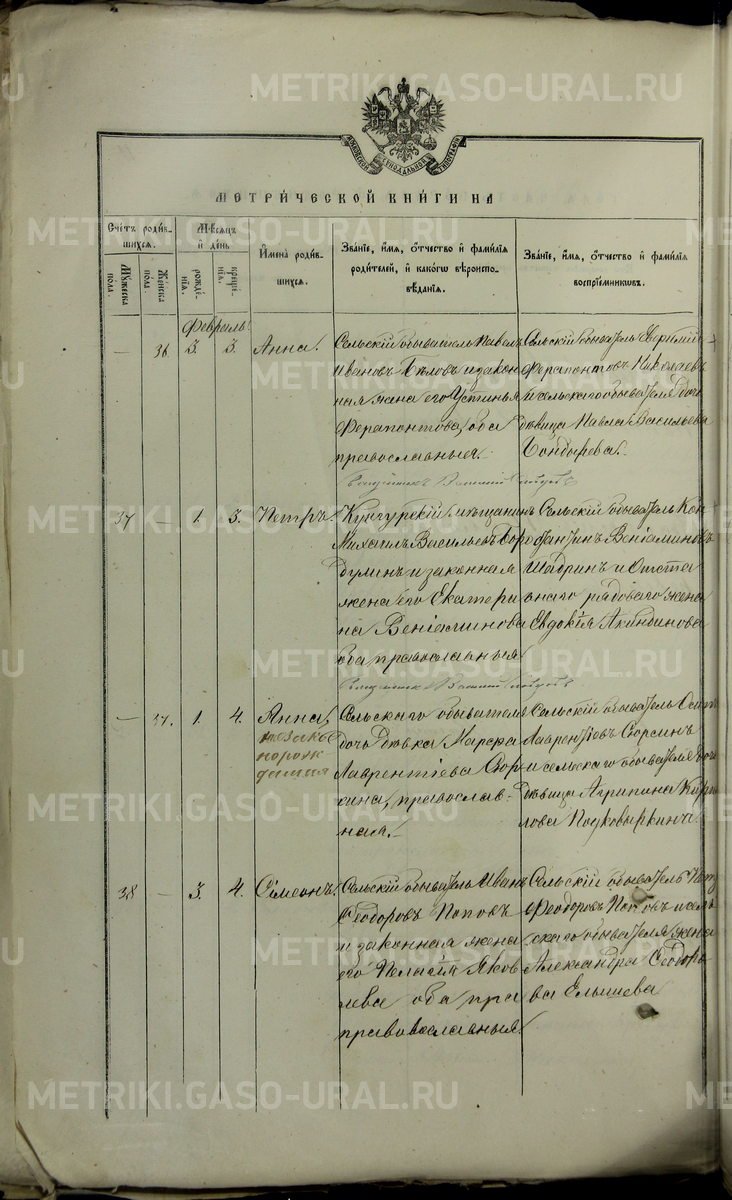 METRIKI.GASO-URAL.RU
МОСКОВСКОЙ СѴНОДАЛЬНОЙ ТИПОГРАФІИ
МЕТРИ́ЧЕСКОЙ КНИ́ГИ НА
Сче́тъ роди́в-
шихся.
Му́жеска
по́ла.
Же́нска
по́ла.
Мѣ́сяцъ
и де́нь
рожде́-
нія.
креще́-
нія.
И҆мена̀ роди́в-
шихся.
Зва́ніе, и҆́мя, ѻ҆́тчество и҆ фами́лія
роди́телей, и҆ како́гѡ вѣроиспо-
вѣ́данія.
Зва́ніе, и҆́мя, ѻ҆́тчество и҆ фами́лія
воспріе́мникѡвъ.
Февраль.
— 36. 3. 3. Анна.
Сельскій обыватель Павелъ
Ивановъ Бѣловъ и закон
ная жена его Устинья
Ферапонтова, оба
православныя.
Сельскій обыватель
Ферапонтовъ Николаевъ
и сельскаго обывателя дочь
дѣвица Павла Васильева
Бондырева.
37 — 1. 3. Петръ.
Кунгурскій мѣщанинъ
Михаилъ Васильевъ Боро
дулинъ и законная
жена его Екатери
на Веніаминова
оба православныя
Сельскій обыватель Кон
стантинъ Веніаминовъ
Шадринъ и Отста
внаго рядоваго жена
Евдокія Акиндинова
— 37. 1. 4. Анна,
незакон
норож
денная
Сельскаго обывателя
дочь дѣвка Марѳа
Лаврентіева Сор
кина, православ-
ная.
Сельскій обыватель Осипъ
Лаврентіевъ Соркинъ
и сельскаго обывателя доч
дѣвица Агрипина Кири
лова Подковыркина
38 — 3. 4. Сѵмеонъ.
Сельскій обыватель Иванъ
Ѳеодоровъ Поповъ
и законная жена
его Пелагія Яков
лева оба пра
православныя
Сельскій обыватель Петръ
Ѳеодоровъ Поповъ и сель
скаго обывателя жена
Александра Ѳеодоро
ва Елышева